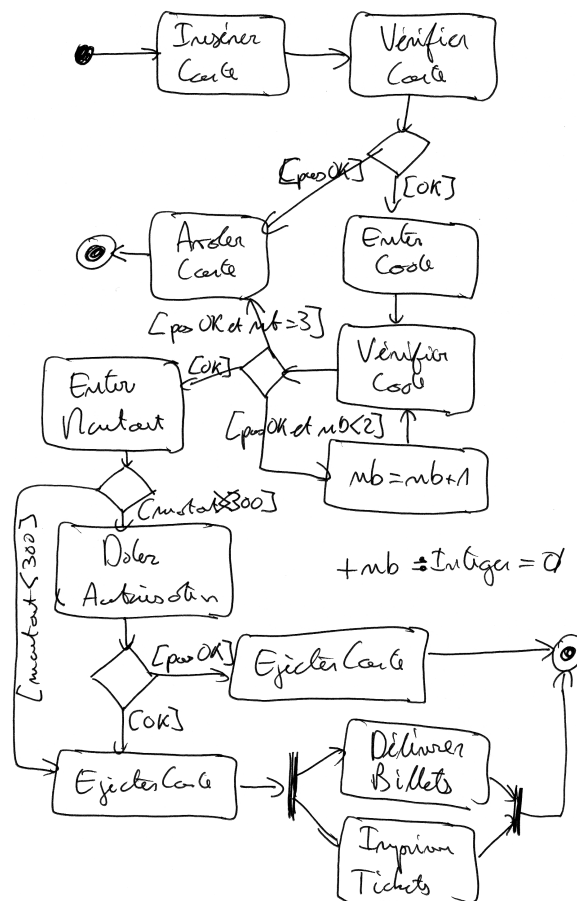 Insérer
Carte
Vérifier
Carte
[pas OK]
[OK]
Avaler
Carte
Enter
Code
[pas OK et nb=3]
Vérifier
Code
[OK]
Enter
Montant
[pas OK et nb<2]
nb=nb+1
[montant>300]
[montant<300]
+nb : Integer = 0
Autorisation
[pas OK]
Ejecter Carte
[OK]
Ejecter Carte
Délivrer
Billets
Imprimer
Tickets